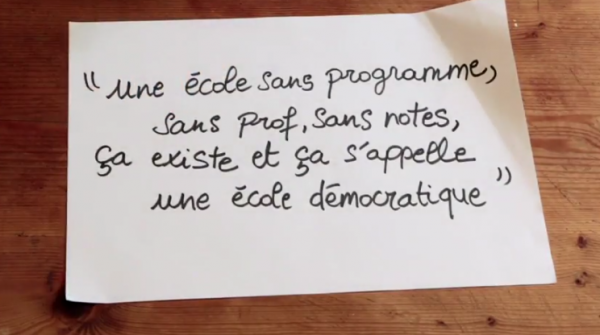 “ une école sans programme,
sans prof, sans notes,
ça existe et ça s'appelle
une école démocratique ”